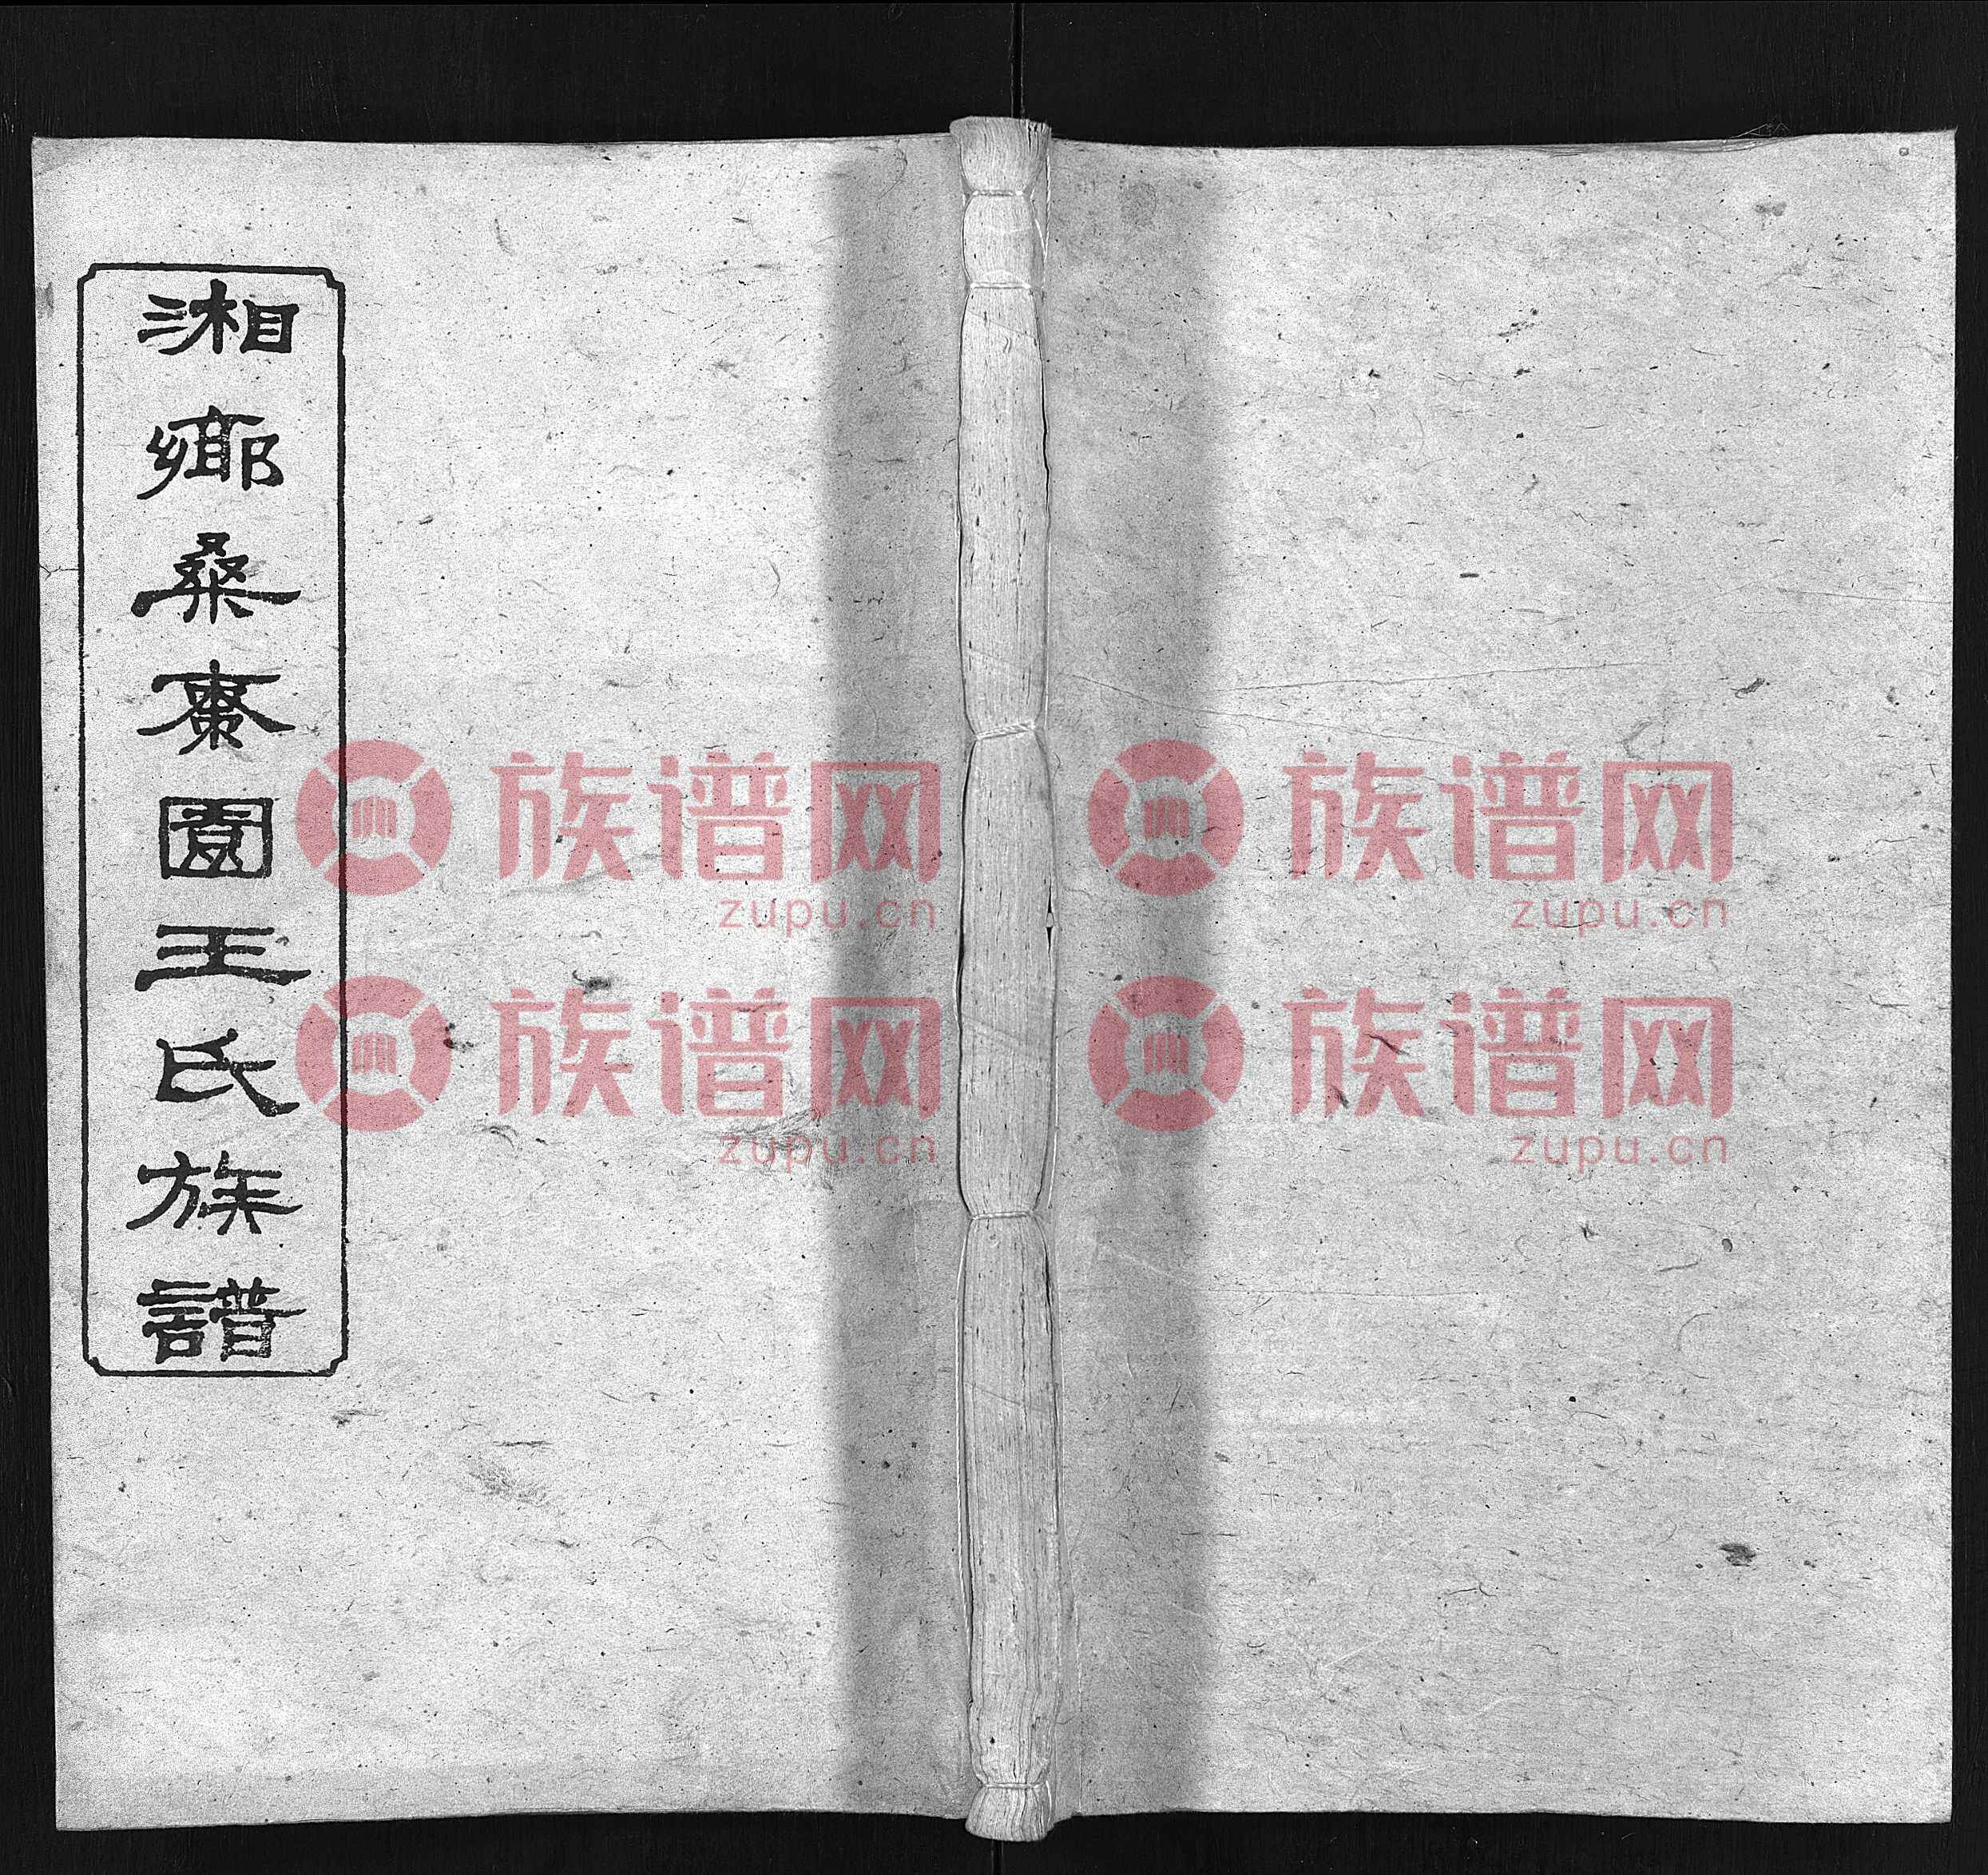 湘鄉桑棗園王氏族譜
族谱网 族谱网
zupu.cn zupu.cn
族谱网 族谱网
zupu.cn zupu.cn